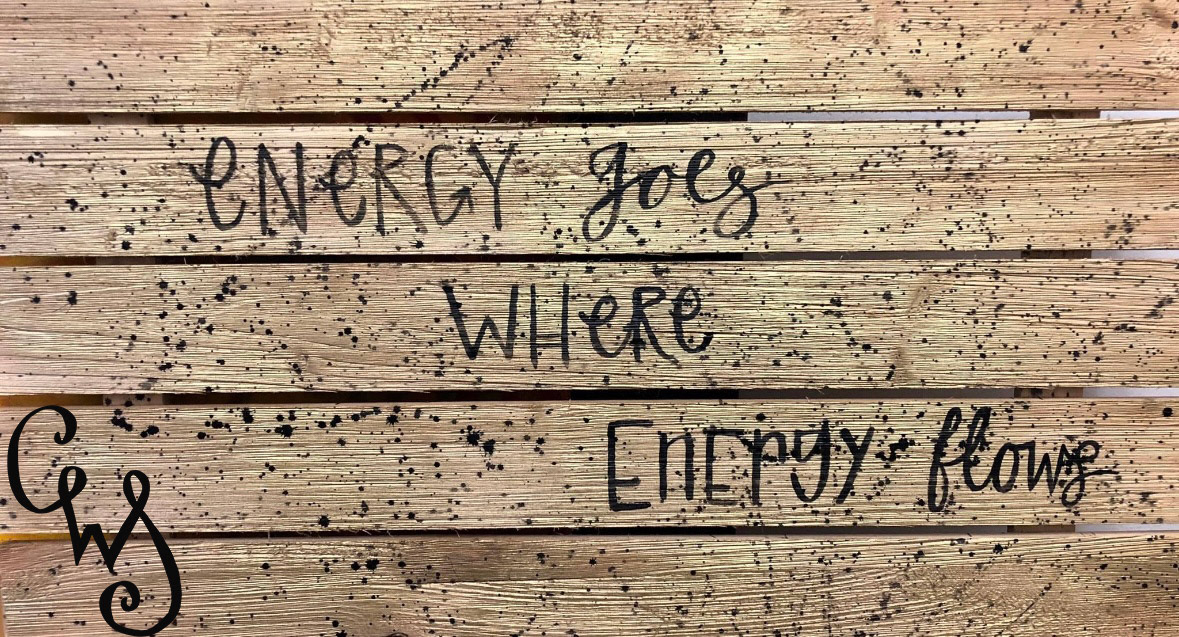 eNeRGY goes
WHeRe
EnErgy flows
CWS